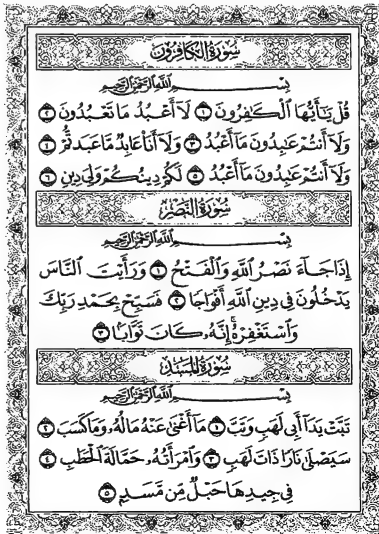 سُورَةُ الكَافِرُونَ
بِسْمِ اللَّهِ الرَّحْمَٰنِ الرَّحِيمِ
قُلْ يَٰٓأَيُّهَا ٱلْكَٰفِرُونَ ١ لَآ أَعْبُدُ مَا تَعْبُدُونَ ٢
وَلَآ أَنتُمْ عَٰبِدُونَ مَآ أَعْبُدُ ٣ وَلَآ أَنَا۠ عَابِدٌ مَّا عَبَدتُّمْ ٤
وَلَآ أَنتُمْ عَٰبِدُونَ مَآ أَعْبُدُ ٥ لَكُمْ دِينُكُمْ وَلِىَ دِينِ ٦
سُورَةُ النَّصْرِ
بِسْمِ اللَّهِ الرَّحْمَٰنِ الرَّحِيمِ
إِذَا جَآءَ نَصْرُ ٱللَّهِ وَٱلْفَتْحُ ١ وَرَأَيْتَ ٱلنَّاسَ
يَدْخُلُونَ فِى دِينِ ٱللَّهِ أَفْوَاجًا ٢ فَسَبِّحْ بِحَمْدِ رَبِّكَ
وَٱسْتَغْفِرْهُ ۚ إِنَّهُۥ كَانَ تَوَّابًۢا ٣
سُورَةُ المَسَدِ
بِسْمِ اللَّهِ الرَّحْمَٰنِ الرَّحِيمِ
تَبَّتْ يَدَآ أَبِى لَهَبٍ وَتَبَّ ١ مَآ أَغْنَىٰ عَنْهُ مَالُهُۥ وَمَا كَسَبَ ٢
سَيَصْلَىٰ نَارًا ذَاتَ لَهَبٍ ٣ وَٱمْرَأَتُهُۥ حَمَّالَةَ ٱلْحَطَبِ ٤
فِى جِيدِهَا حَبْلٌ مِّن مَّسَدٍۭ ٥